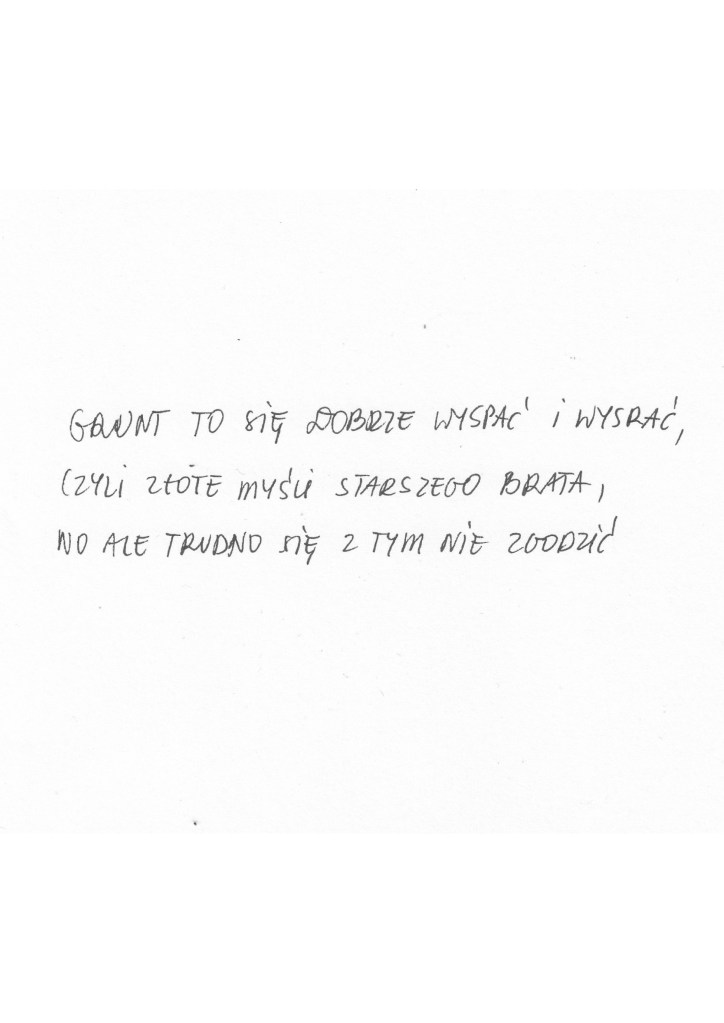 GRUNT TO SIĘ DOBRZE WYSPAĆ I WYSRAĆ,
CZYLI ZŁOTE MYŚLI STARSZEGO BRATA,
NO ALE TRUDNO SIĘ Z TYM NIE ZGODZIĆ